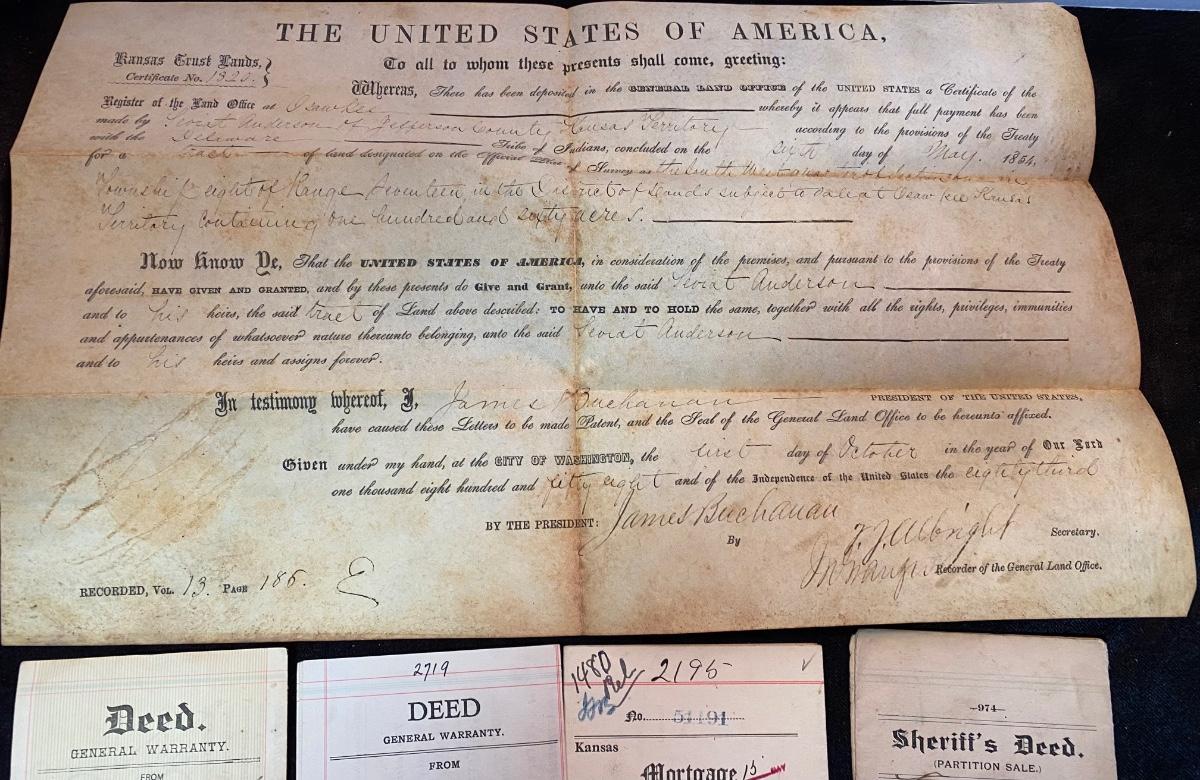 THE UNITED STATES OF AMERICA,
Kansas Trust Lands,
Certificate No. 1320.
To all to whom these presents shall come, greeting:
Whereas, There has been deposited in the GENERAL LAND OFFICE of the UNITED STATES a Certificate of the
Register of the Land Office at Osawkee whereby it appears that full payment has been
made by Anderson of Jefferson County Kansas Territory according to the provisions of the Treaty
with the Delaware Tribe of Indians, concluded on the sixth day of May. 1854.
for a tract of land designated on the Official of Survey as the South West quarter of Section in
Township eight of Range Seventeen in the District of Lands subject to sale at Osawkee Kansas
Territory containing one hundred and sixty acres.
Now Know Ye, That the UNITED STATES OF AMERICA, in consideration of the premises, and pursuant to the provisions of the Treaty
aforesaid, HAVE GIVEN AND GRANTED, and by these presents do Give and Grant, unto the said Anderson
and to his heirs, the said tract of Land above described: TO HAVE AND TO HOLD the same, together with all the rights, privileges, immunities
and appurtenances of whatsoever nature thereunto belonging, unto the said Anderson
and to his heirs and assigns forever.
In testimony whereof, I, James Buchanan PRESIDENT OF THE UNITED STATES,
have caused these Letters to be made Patent, and the Seal of the General Land Office to be hereunto affixed.
Given under my hand, at the CITY OF WASHINGTON, the first day of October in the year of Our Lord
one thousand eight hundred and fifty eight and of the Independence of the United States the eighty third
BY THE PRESIDENT: James Buchanan
By T. J. Albright Secretary.
Recorder of the General Land Office.
RECORDED, VOL. 13. PAGE 186.
Deed.
GENERAL WARRANTY.
FROM
2719
DEED
GENERAL WARRANTY.
FROM
1480
Rel
2195
No. 51191
Kansas
Mortgage 15
MAY
—974—
Sheriff's Deed.
(PARTITION SALE.)